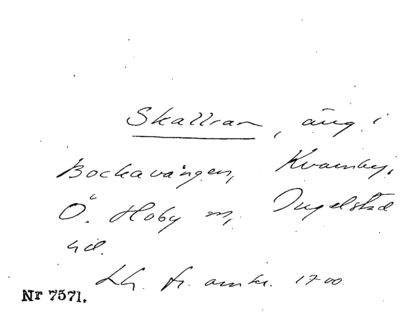 Skallran, äng i
Bockavången, Kvarnby,
Ö. Hoby sn, Ingelstad
hd.
Lh. fr. omkr. 1700.
Nr 7571.